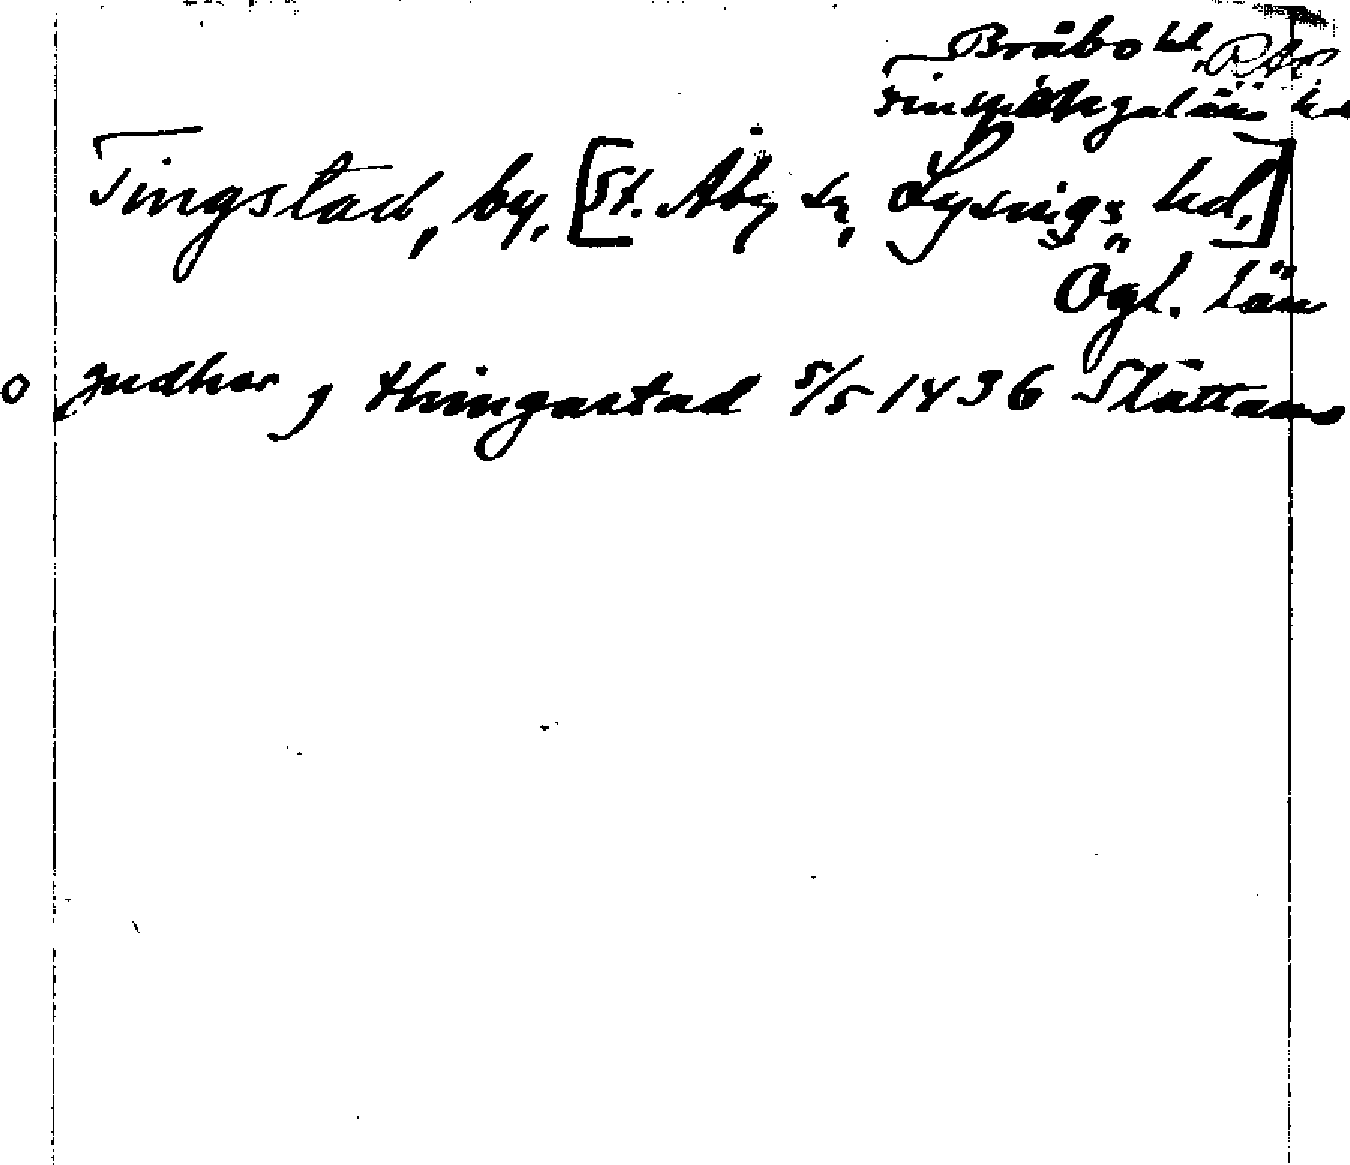 Bråbo hd, RAP
Finspångaläns hd
Tingstad, by, [St. Åby sn, Lysings hd,]
Ögl. län
o gudhor j thingastad 5/5 1436 Slättans